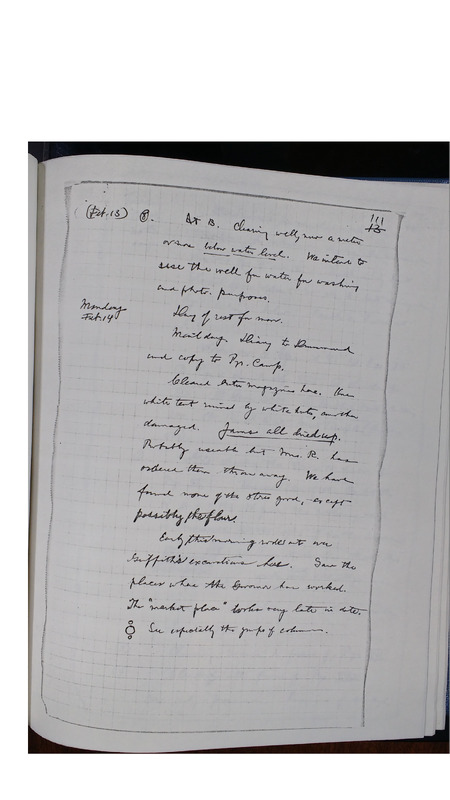 111
(Feb. 13) 8. At B. clearing well, now a meter 13
or more below water level. We intend to
use the well for water for washing
and photo. purposes.
Monday Day of rest for men.
Feb. 14 Mail day. Diary to Drummond
and copy to Pyr. Camp.
Cleared outer magazine here. One
white tent ruined by white ants, another
damaged. Jams all dried up.
Probably useable but Mrs. R. has
ordered them thrown away. We have
found none of the stores good, except
possibly the flour.
Early this morning rode out over
Griffith's excavations here. Saw the
places where the Germans have worked.
The "market place" looks very late in date.
See especially the groups of columns.